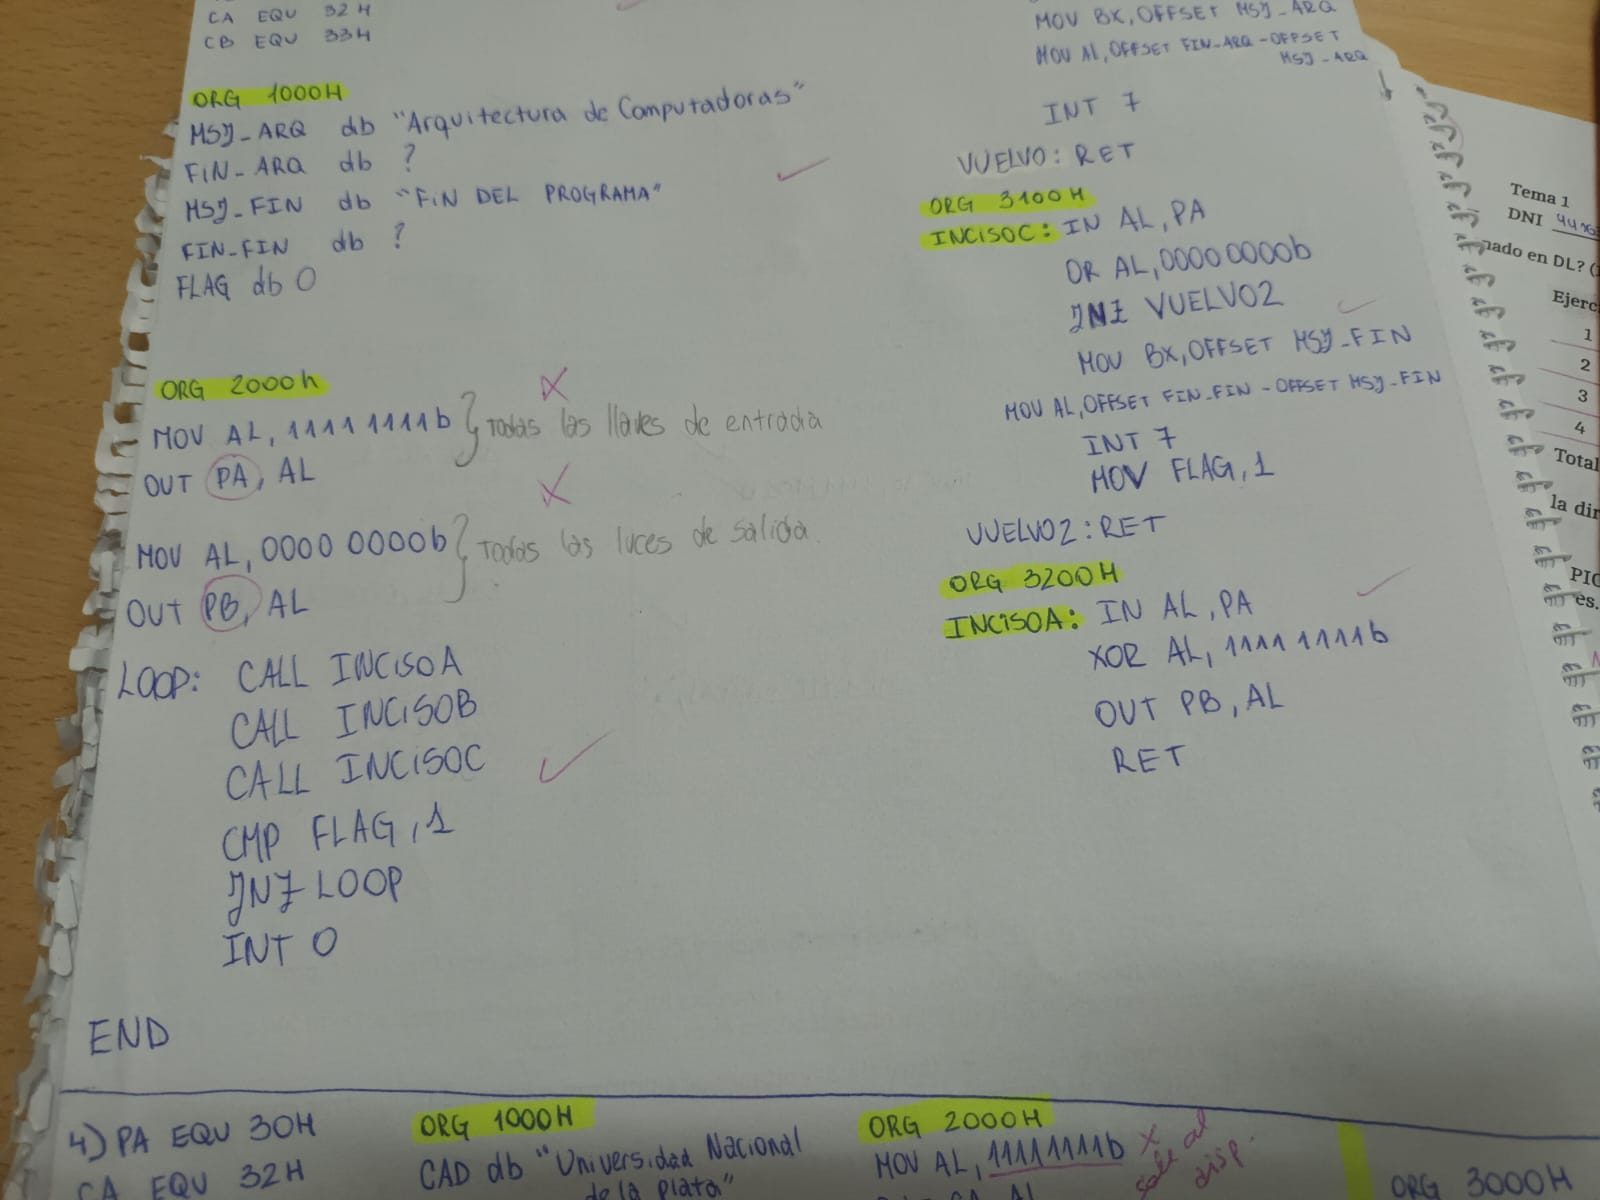 CA EQU 32H
CB EQU 33H
ORG 1000H
MSJ_ARQ db "Arquitectura de Computadoras"
FIN_ARQ db ?
MSJ_FIN db "FIN DEL PROGRAMA"
FIN_FIN db ?
FLAG db 0
ORG 2000h
MOV AL, 1111 1111b } Todas las llaves de entrada
OUT PA, AL
MOV AL, 0000 0000b } Todas las luces de salida
OUT PB, AL
LOOP: CALL INCISOA
CALL INCISOB
CALL INCISOC
CMP FLAG, 1
JNZ LOOP
INT 0
END
MOV BX, OFFSET MSJ_ARQ
MOV AL, OFFSET FIN_ARQ - OFFSET
MSJ_ARQ
INT 7
VUELVO: RET
ORG 3100H
INCISOC: IN AL, PA
OR AL, 0000 0000b
JNZ VUELVO2
MOV BX, OFFSET MSJ_FIN
MOV AL, OFFSET FIN_FIN - OFFSET MSJ_FIN
INT 7
MOV FLAG, 1
VUELVO2: RET
ORG 3200H
INCISOA: IN AL, PA
XOR AL, 1111 1111b
OUT PB, AL
RET
4) PA EQU 30H
CA EQU 32H
ORG 1000H
CAD db "Universidad Nacional
de la plata"
ORG 2000H
MOV AL, 11111111b X
sale al
disp.
ORG 3000H
Tema 1
DNI
en DL?
1
2
3
4
Total
la
PIC
es.